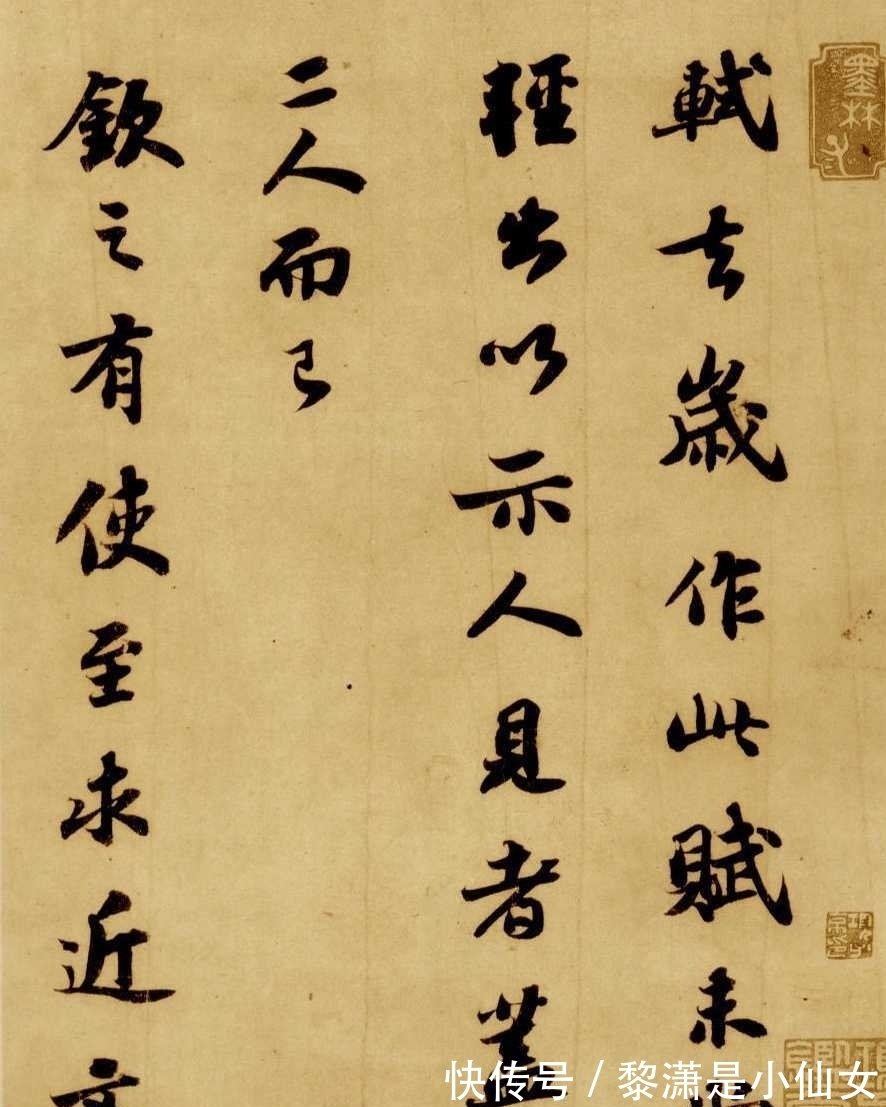 墨林子
軾去歲作此賦未
輕出以示人見者蓋
二人而已
欽之有使至求近
快传号 / 黎潇是小仙女